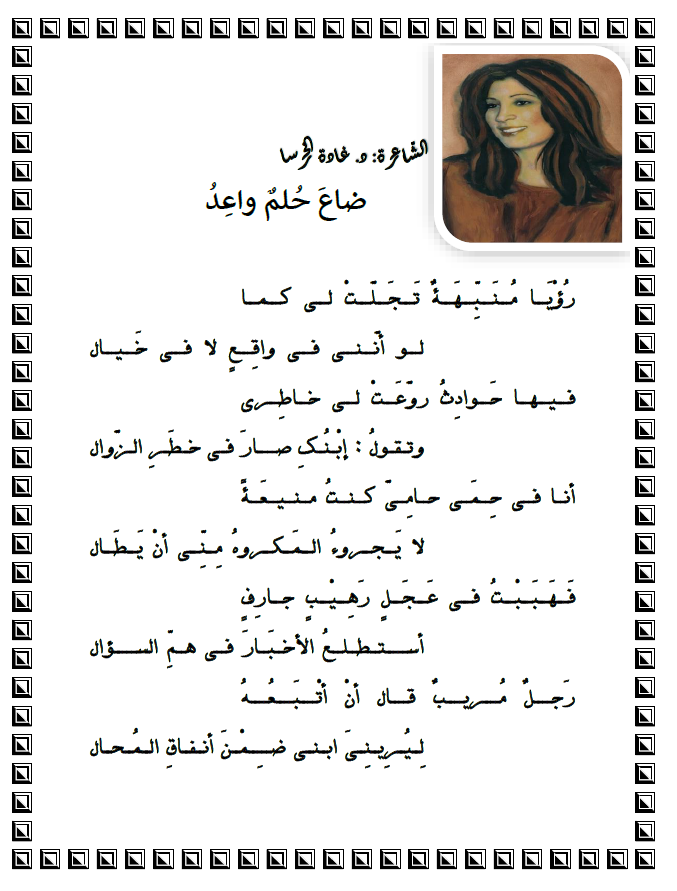 الشّاعرة: د. غادة الخرسا
ضاعَ حُلمٌ واعِدُ
رُؤْيَا مُنَبِّهَةٌ تَجَلّتْ لى كما
لو أنّنى فى واقِعٍ لا فى خَيال
فيها حَوادِثُ روّعَتْ لى خاطِرى
وتقولُ : إبْنُكِ صارَ فى خطَرِ الزّوال
أنا فى حِمَى حامِىّ كنتُ منيعَةً
لا يَجروءُ المَكروهُ مِنِّى أنْ يَطَال
فَهَبَبْتُ فى عَجَلٍ رَهِيْبٍ جارِفٍ
أستطلعُ الأخبَارَ فى همِّ السؤال
رَجلٌ مُريبٌ قال أنْ أتْبَعُهُ
لِيُرِينِىَ ابنى ضِمْنَ أنفاقِ المُحال